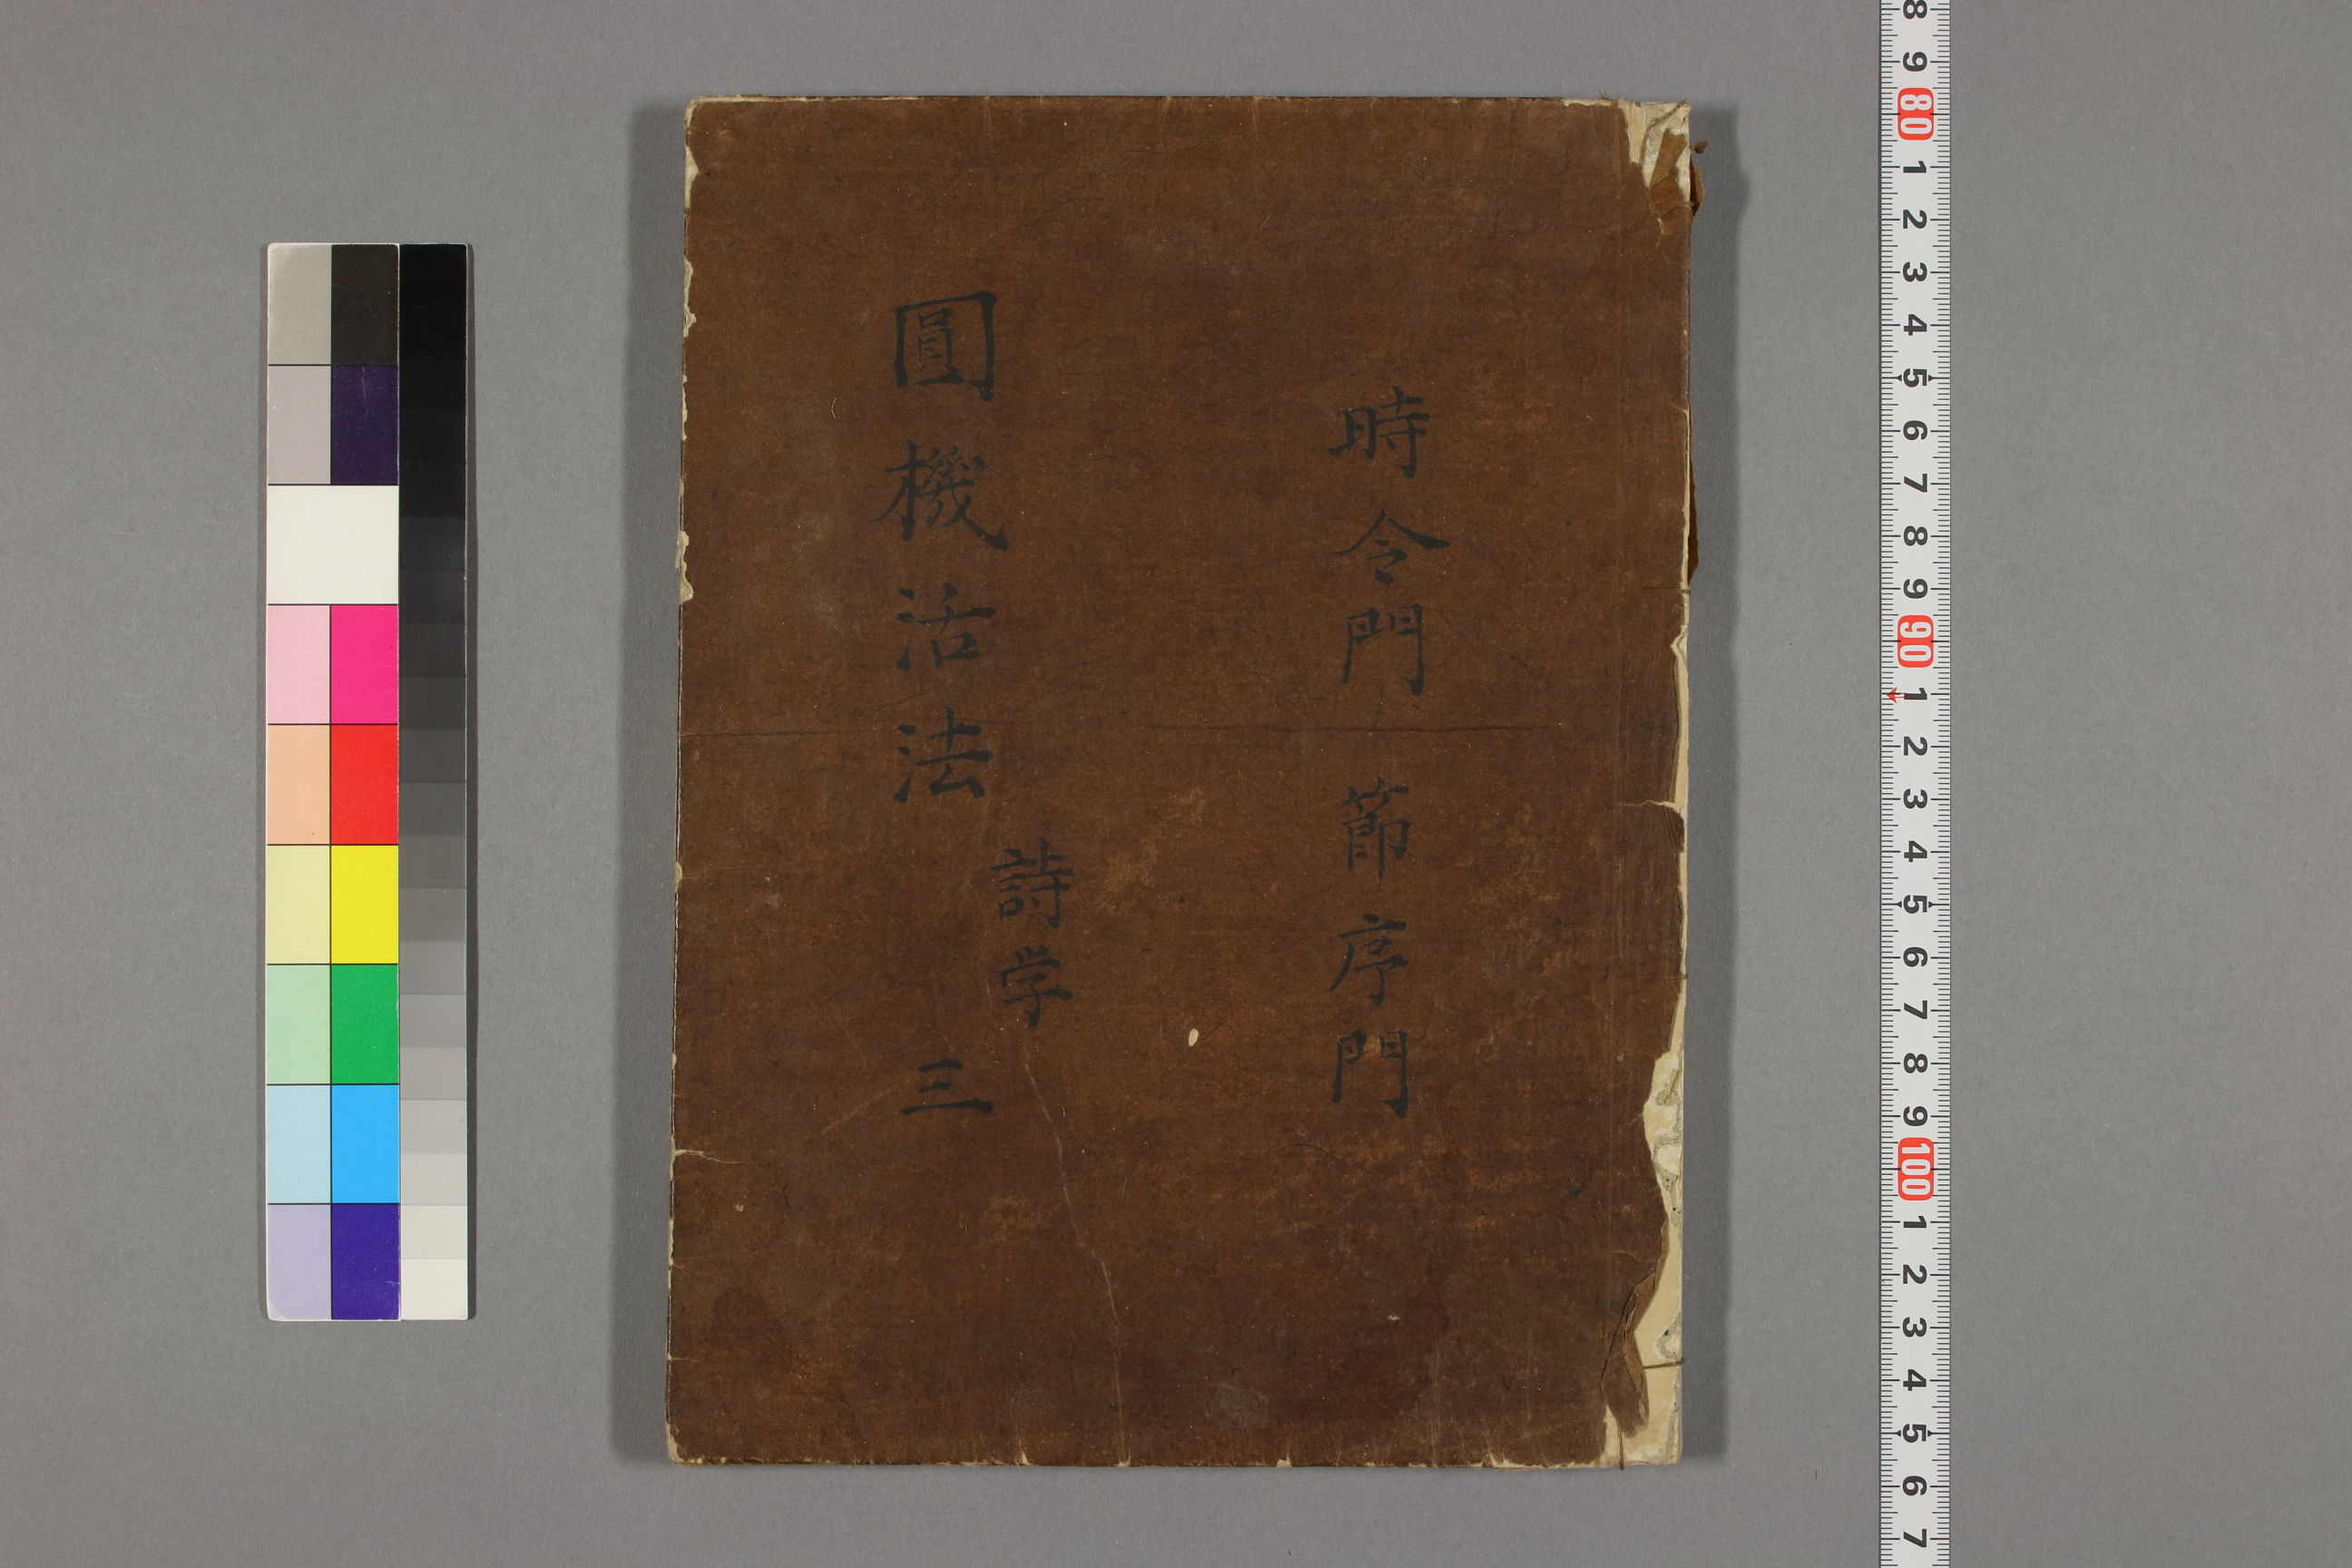 時令門 節序門
圓機活法
詩学
三
8 9 80 1 2 3 4 5 6 7 8 9 90 1 2 3 4 5 6 7 8 9 100 1 2 3 4 5 6 7